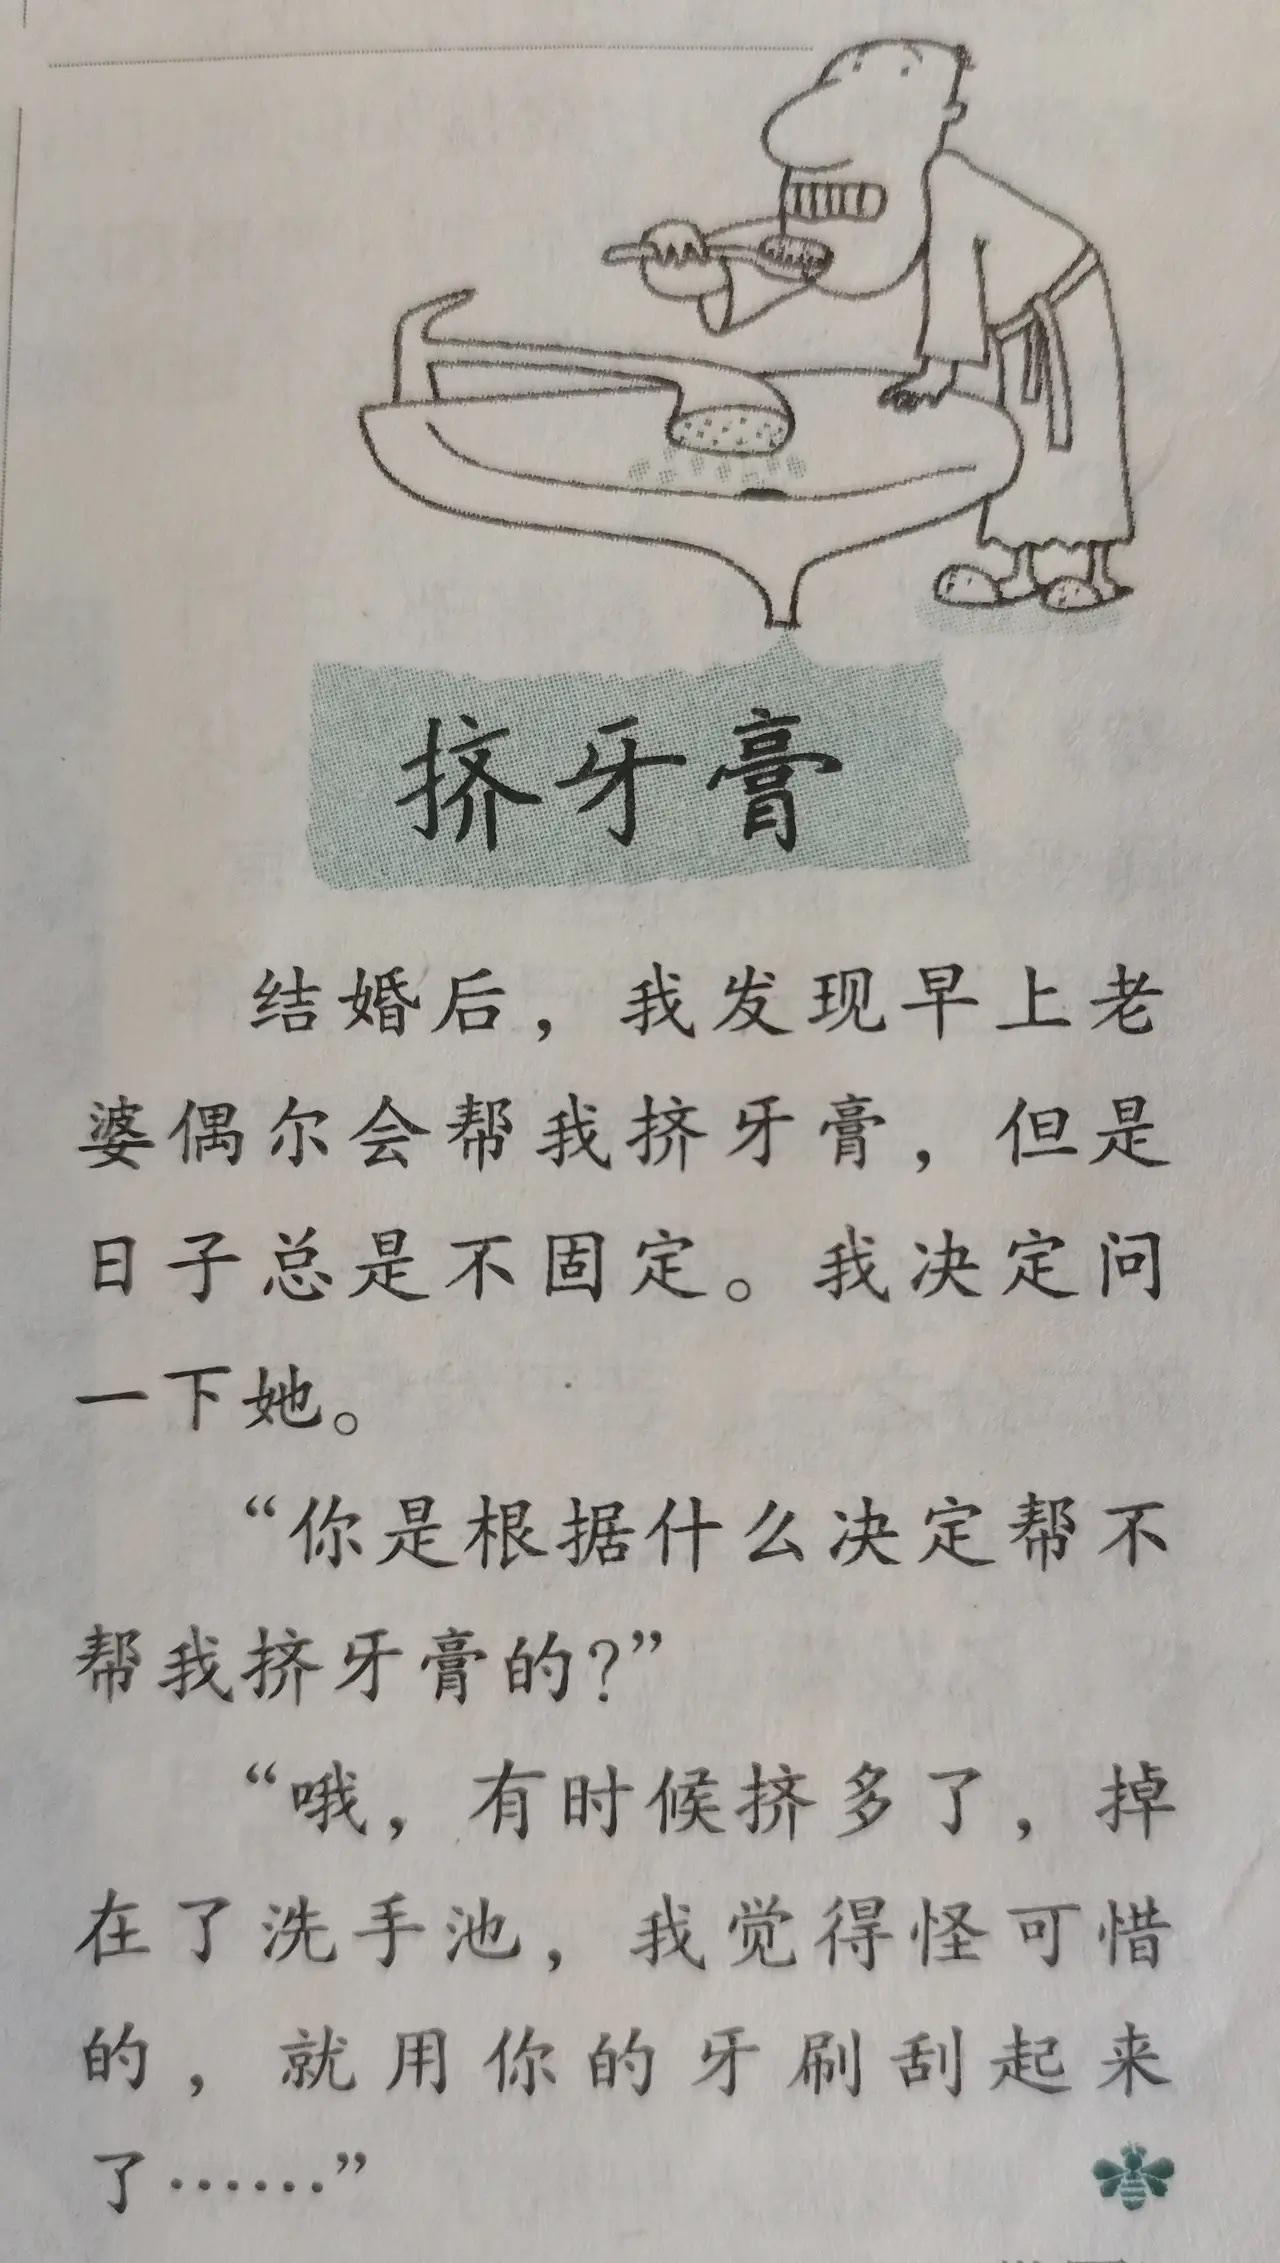 挤牙膏
结婚后，我发现早上老
婆偶尔会帮我挤牙膏，但是
日子总是不固定。我决定问
一下她。
“你是根据什么决定帮不
帮我挤牙膏的？”
“哦，有时候挤多了，掉
在了洗手池，我觉得怪可惜
的，就用你的牙刷刮起来
了……”